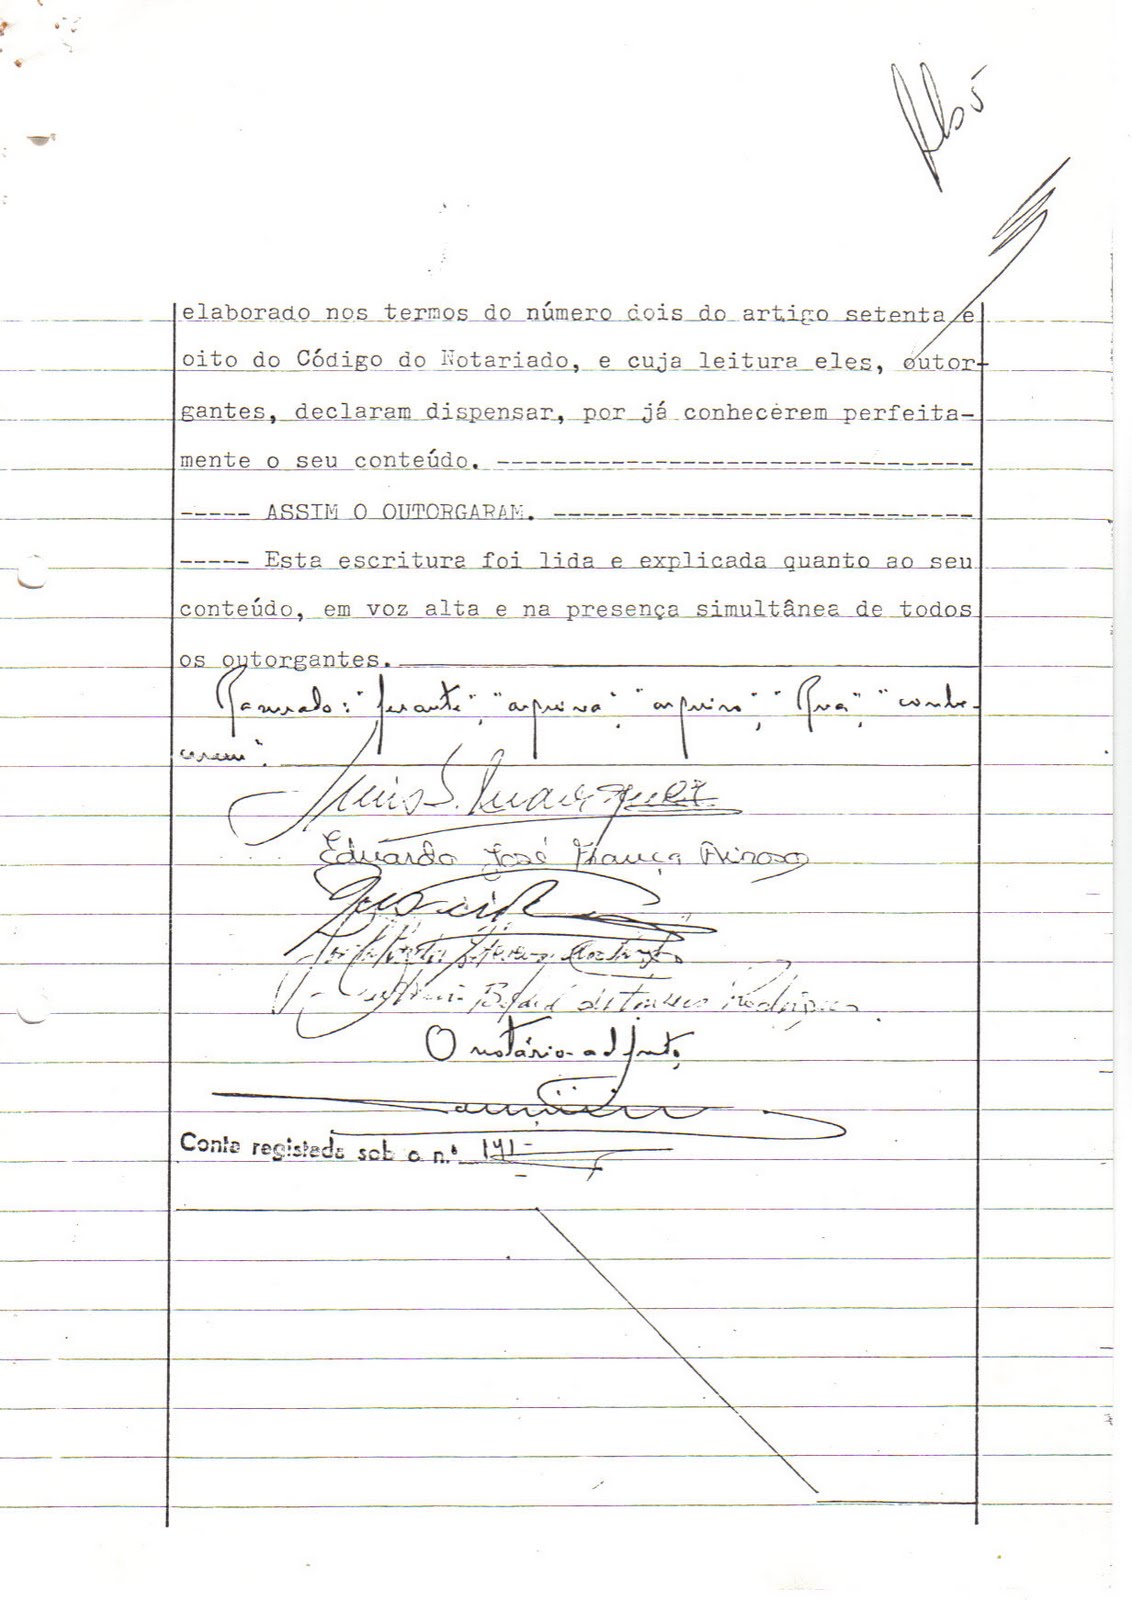 elaborado nos termos do número dois do artigo setenta e
oito do Código do Notariado, e cuja leitura eles, outor-
gantes, declaram dispensar, por já conhecerem perfeita-
mente o seu conteúdo. ---------------------------------
----- ASSIM O OUTORGARAM. -----------------------------
----- Esta escritura foi lida e explicada quanto ao seu
conteúdo, em voz alta e na presença simultânea de todos
os outorgantes.
"perante", "arquivo", "Rua", "conhe-
cerem".
Luís S.
Eduardo José França
Rodrigues
O notário-adjunto,
Conta registada sob o n.º 191-